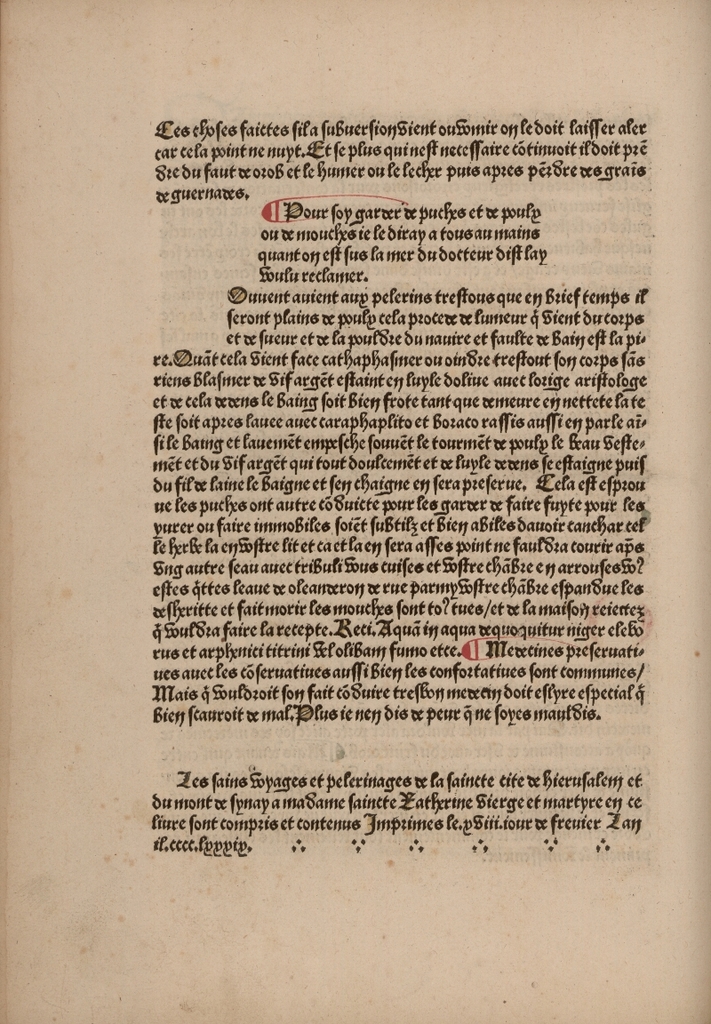 Ces choses faictes sil a subuersion vient ou vomir on le doit laisser aler
car cela point ne nuyt. Et se plus qui nest necessaire cõtinuoit il doit prẽ
dre du faut de orob et le humer ou le lecher puis apres pẽrdre des graĩs
de guernades.
¶ Pour soy garder de puches et de poulx
ou de mouches ie le diray a tous au mains
quant on est sus la mer du docteur dist lay
voulu reclamer.
Ouuent auient aux pelerins trestous que en brief temps il
seront plains de poulx cela procede de lumeur q̃ vient du corps
et de sueur et de la pouldre du nauire et faulte de bain est la pi-
re. Quãt cela vient face cathaphasmer ou oindre trestout son corps sãs
riens blasmer de vif argẽt estaint en luyle doliue auec lorige aristologe
et de cela dedens le baing soit bien frote tant que demeure en nettete la te
ste soit apres lauee auec caraphaplito et boraco rassis aussi en parle aĩ-
si le baing et lauemẽt empesche souuẽt le tourmẽt de poulx le beau veste-
mẽt et du vif argẽt qui tout doulcemẽt et de luyle dedens se estaigne puis
du fil de laine le baigne et sen chaigne en sera preserue. Cela est esprou
ue les puches ont autre cõduicte pour les garder de faire fuyte pour les
purer ou faire immobiles soiẽt subtilz et bien abiles dauoir canchar cel
le herbe la en vostre lit et ca et la en sera asses point ne fauldra courir apꝭs
vng autre seau auec tribuli vous cuises et vostre chãbre en arrouses vo?
estes q̃ttes leaue de oleanderon de rue parmy vostre chãbre espandue les
desheritte et fait morir les mouches sont to? tues/et de la maison reiectez
q̃ vouldra faire la recepte. Reci. Aquã in aqua dequoquitur niger elebo
rus et arphenici titrini vel olibam fumo etce. ¶ Medecines preseruati-
ues auec les cõseruatiues aussi bien les confortatiues sont communes/
Mais q̃ vouldroit son fait cõduire tresbon medecin doit eslyre especial q̃
bien scauroit de mal. Plus ie nen dis de peur q̃ ne soyes mauldis.
Les sains voyages et pelerinages de la saincte cite de hierusalem et
du mont de synay a madame saincte Katherine vierge et martyre en ce
liure sont compris et contenus Imprimes le.xviii.iour de freuier Lan
il.cccc.lxxxix.